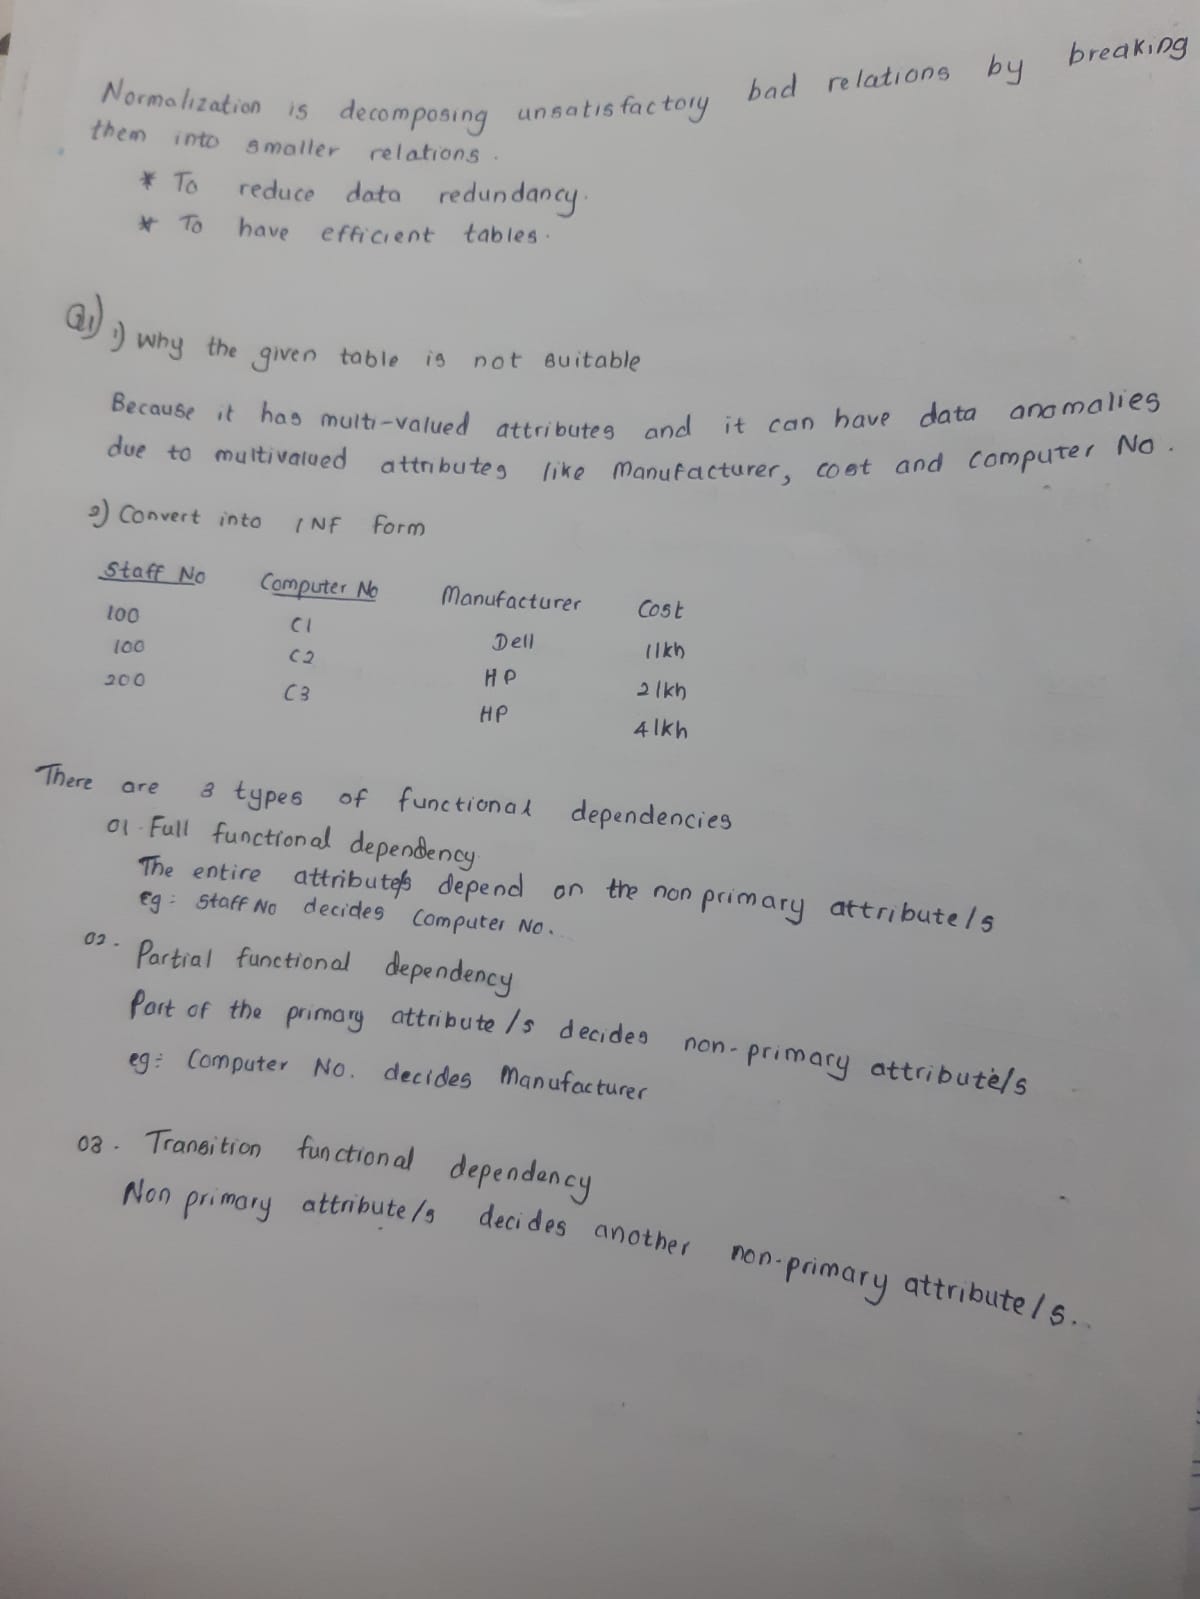 Normalization is decomposing unsatisfactory bad relations by breaking
them into smaller relations.
* To reduce data redundancy.
* To have efficient tables.
Q1) 1) Why the given table is not suitable
Because it has multi-valued attributes and it can have data anomalies
due to multivalued attributes like Manufacturer, cost and computer No.
2) Convert into 1NF form
Staff No Computer No Manufacturer Cost
100 C1 Dell 1lkh
100 C2 HP 2lkh
200 C3 HP 4lkh
There are 3 types of functional dependencies
01. Full functional dependency
The entire attribute/s depend on the non primary attribute/s
Eg: Staff No decides Computer No.
02. Partial functional dependency
Part of the primary attribute/s decides non-primary attribute/s
eg: Computer No. decides Manufacturer
03. Transition functional dependency
Non primary attribute/s decides another non-primary attribute/s..